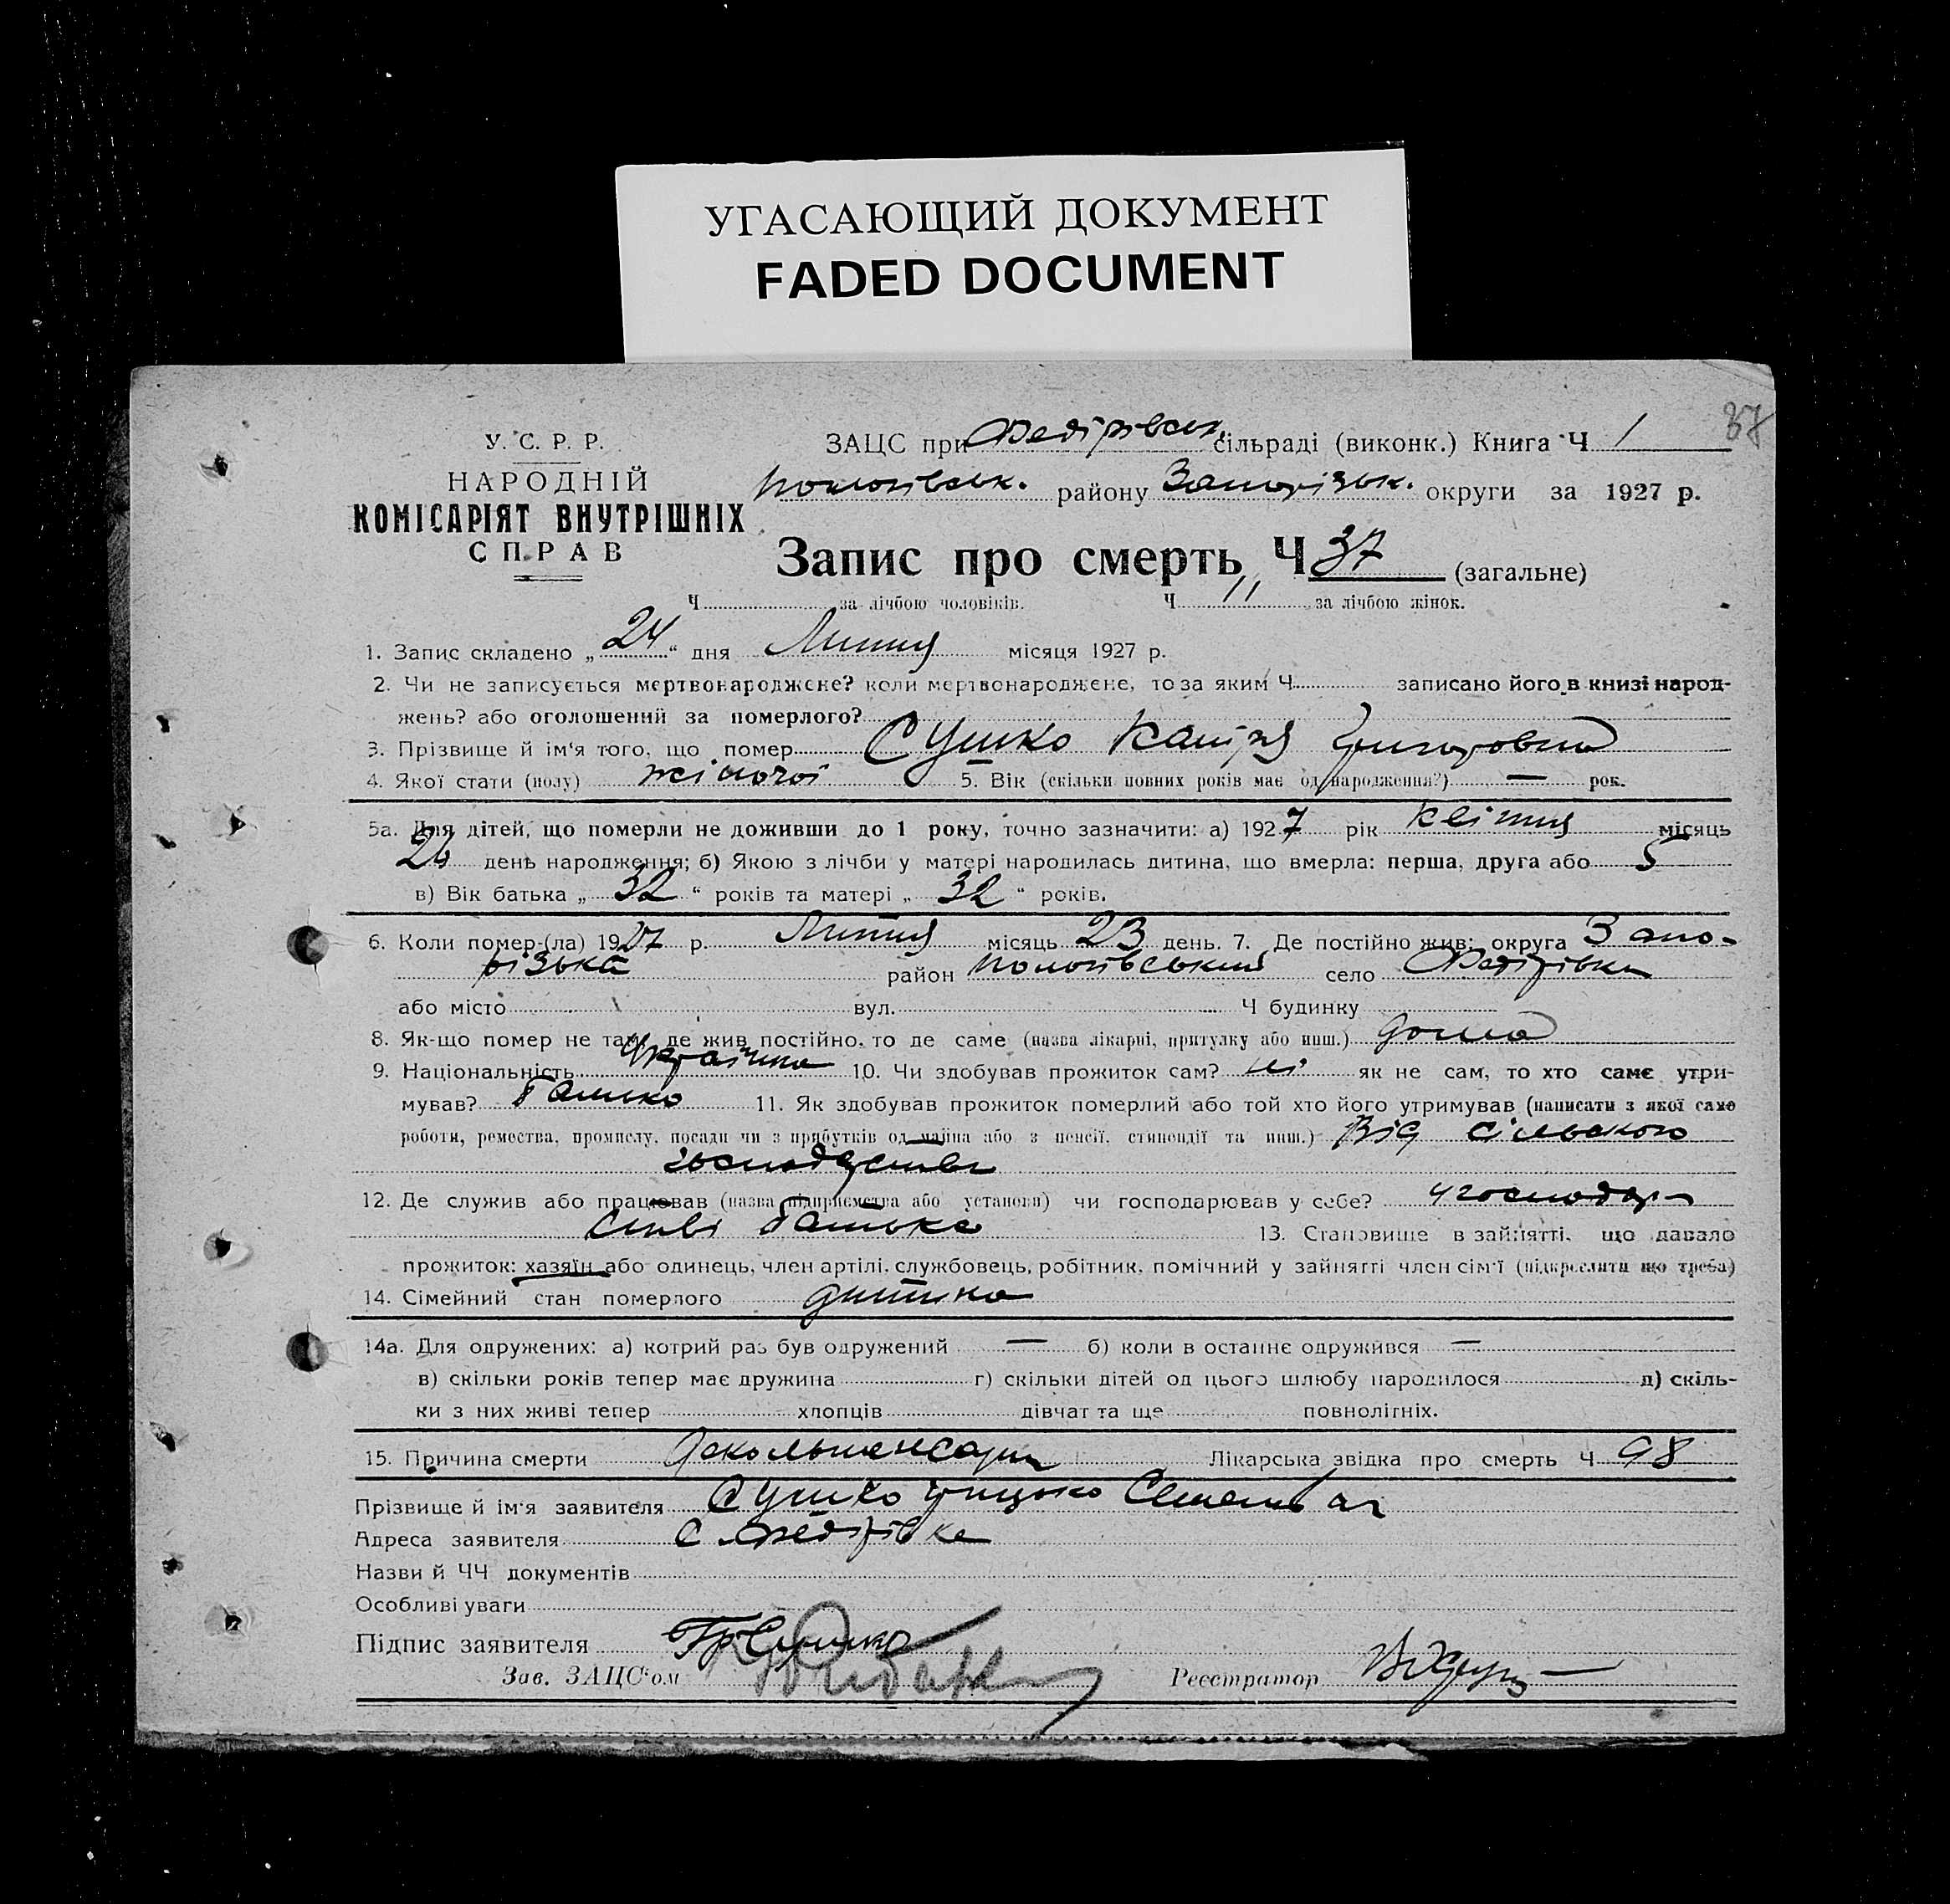 УГАСАЮЩИЙ ДОКУМЕНТ
FADED DOCUMENT
37
У. С. Р. Р.
НАРОДНІЙ
КОМІСАРІЯТ ВНУТРІШНІХ
СПРАВ
ЗАЦС при Федірівськ. сільраді (виконк.) Книга Ч 1
Пологівськ. району Запорізьк. округи за 1927 р.
Запис про смерть Ч 37 (загальне)
Ч за лічбою чоловіків. Ч 11 за лічбою жінок.
1. Запис складено „ 24 “ дня Липня місяця 1927 р.
2. Чи не записується мертвонароджене? коли мертвонароджене, то за яким Ч. записано його в книзі народ-
жень? або оголошений за померлого?
3. Прізвище й ім'я того, що помер Сушко Григоровна
4. Якої стати (полу) жіночої 5. Вік (скільки повних років має од народження?) — рок.
5а. Для дітей, що померли не доживши до 1 року, точно зазначити: а) 1927 рік Квітня місяць
26 день народження; б) Якою з лічби у матері народилась дитина, що вмерла: перша, друга або 5
в) Вік батька „ 32 “ років та матері „ 32 “ років.
6. Коли помер-(ла) 1927 р. Липня місяць 23 день. 7. Де постійно жив: округа Запо-
різька район Пологівський село Федірівка
або місто вул. Ч будинку
8. Як-що помер не там, де жив постійно, то де саме (назва лікарні, притулку або инш.) дома
9. Національність Українка 10. Чи здобував прожиток сам? ні як не сам, то хто саме утри-
мував? Батько 11. Як здобував прожиток померлий або той хто його утримував (написати з якої саме
роботи, ремества, промислу, посади чи з прибутків од майна або з пенсії, стипендії та инш.) Від сільського
господарства
12. Де служив або працював (назва підприємства або установи) чи господарював у себе? у господар-
стві батька 13. Становище в зайнятті, що давало
прожиток: хазяїн або одинець, член артілі, службовець, робітник, помічний у зайнятті член сім'ї (підкреслити що треба)
14. Сімейний стан померлого дитина
14а. Для одружених: а) котрий раз був одружений — б) коли в останнє одружився —
в) скільки років тепер має дружина г) скільки дітей од цього шлюбу народилося д) скіль-
ки з них живі тепер хлопців дівчат та ще повнолітніх.
15. Причина смерти Лікарська звідка про смерть Ч 98
Прізвище й ім'я заявителя Сушко Грицько Семенович
Адреса заявителя с. Федірівка
Назви й ЧЧ документів
Особливі уваги
Підпис заявителя Гр Сушко
Зав. ЗАЦС'ом Реєстратор